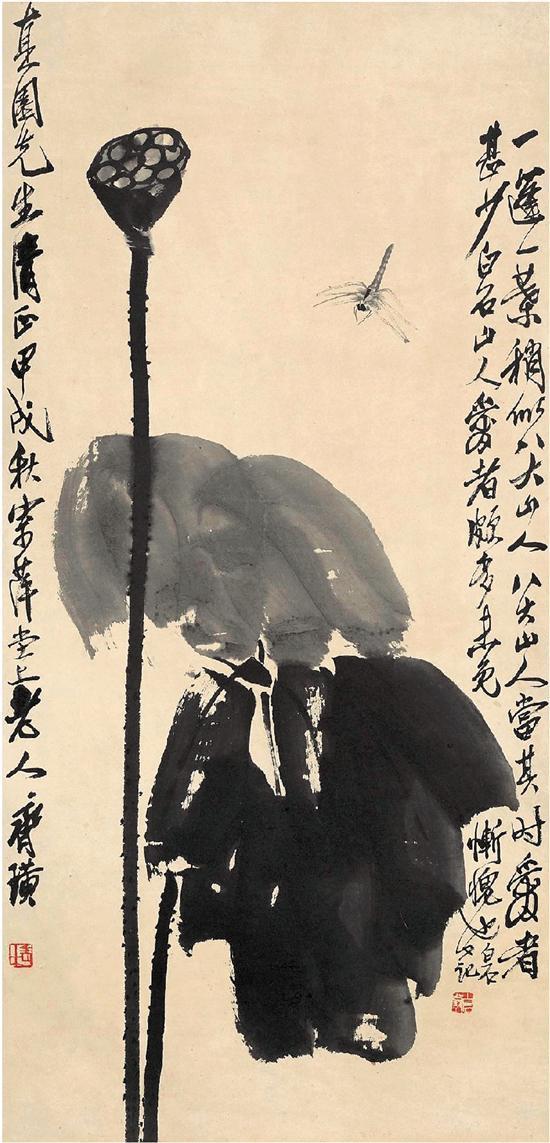 一蓬一葉稍似八大山人八大山人當其時愛者
甚少白石山人愛者頗多未免慚愧也白石又記
園先生清正甲戌秋寄萍堂上老人齊璜